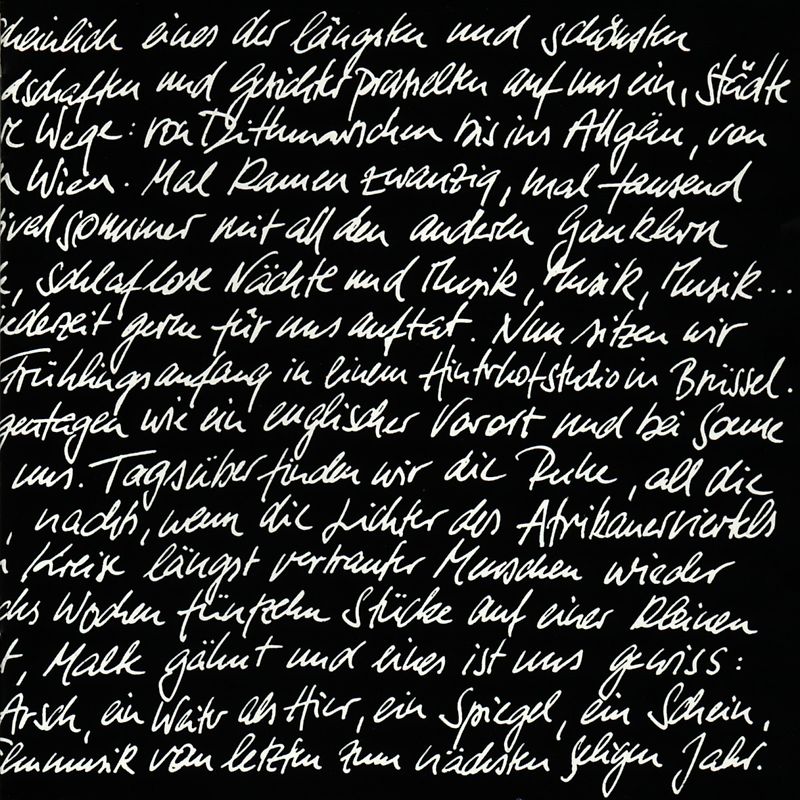 cheinlich eines der längsten und schönsten
dschaften und Gesichter prasselten auf uns ein, Städte
Wege: von Dithmarschen bis ins Allgäu, von
n Wien. Mal kamen zwanzig, mal tausend
ivalsommer mit all den anderen Gauklern
, schlaflose Nächte und Musik, Musik, Musik...
iederzeit gerne für uns auftat. Nun sitzen wir
Frühlingsanfang in einem Hinterhofstudio in Brüssel.
gentagen wie ein englischer Vorort und bei Sonne
uns. Tagsüber finden wir die Ruhe, all die
, nachts, wenn die Lichter des Afrikanerviertels
n Kreise längst vertrauter Menschen wieder
chs Wochen fünfzehn Stücke auf einer kleinen
t, Malte gähnt und eines ist uns gewiss:
Arsch, ein Weiter als Hier, ein Spiegel, ein Schein,
ilmmusik vom letzten zum nächsten seligen Jahr.